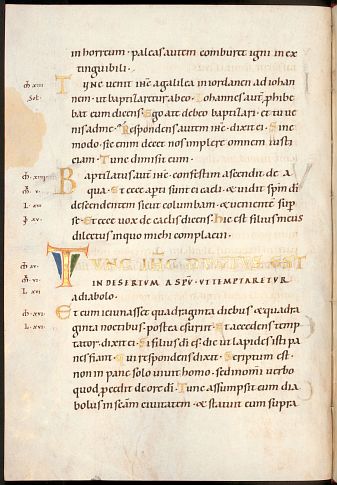 in horreum · paleas autem comburet igni in ex
tinguibili ·
Tunc uenit ihc a galilea in iordanen ad iohan
nem · ut baptizaretur ab eo · Iohannes aut phibe
bat eum dicens · Ego a te debeo baptizari · et tu ue
nis ad me · Respondens autem ihc · dixit ei · Sine
modo · sic enim decet nos implere omnem iusti
ciam · Tunc dimisit eum ·
Baptizatus aut ihc · confestim ascendit de a
qua · Et ecce apti sunt ei caeli · & uidit spm di
descendentem sicut columbam · & uenientē sup
se · Et ecce uox de caelis dicens · Hic est filius meus
dilectus in quo michi complacui ·
TUNC IHC DUCTUS EST
IN DESERTUM A SPU · UT TEMPTARETUR
a diabolo ·
Et cum ieiunasset quadraginta diebus & quadra
ginta noctibus · postea esuriit · Et accedens temp
tator · dixit ei · Si filius di es · dic ut lapides isti pa
nes fiant · Qui respondens dixit · Scriptum est ·
non in pane solo uiuit homo · sed in omi uerbo
quod pcedit de ore di · Tunc assumpsit eum dia
bolus in scam ciuitatem · & statuit eum supra